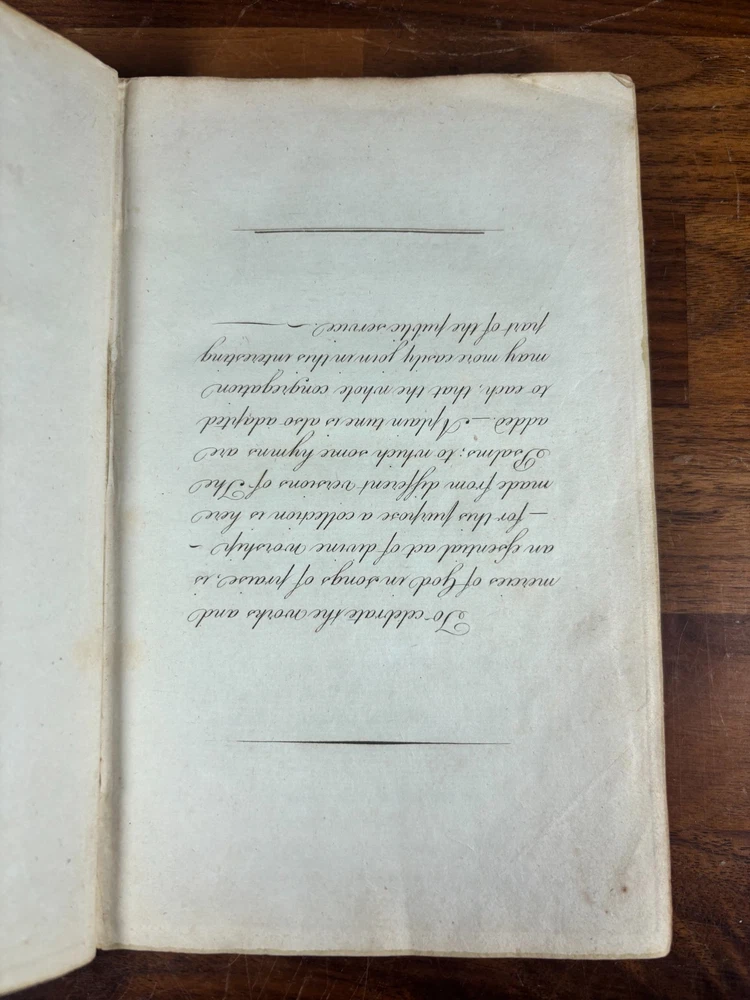 To celebrate the works and
mercies of God in songs of praise, is
an essential act of divine worship -
— for this purpose a collection is here
made from different versions of The
Psalms; to which some hymns are
added. — A plain tune is also adapted
to each, that the whole congregation
may more easily join in this interesting
part of the public service. —